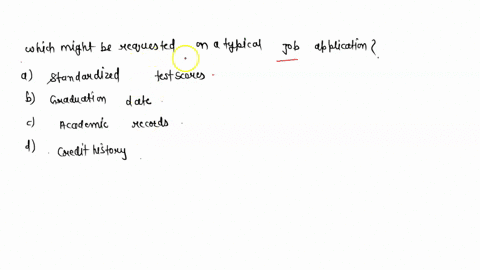 which might be requested on a typical job application?
a) Standardized test scores.
b) Graduation date.
c) Academic records.
d) Credit history.